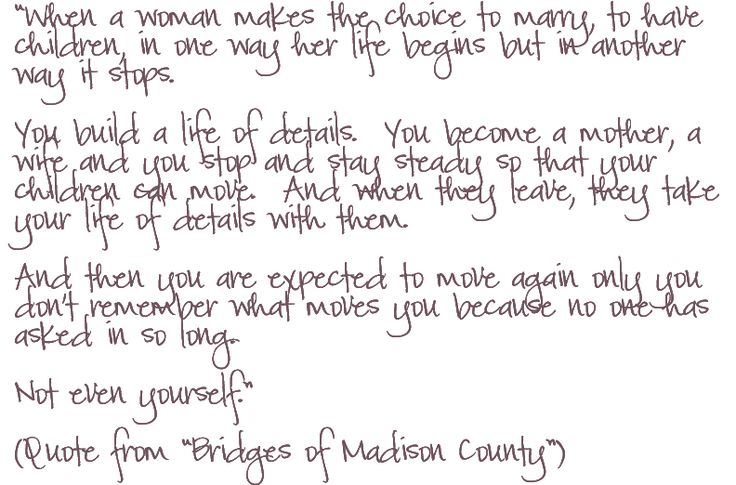 "When a woman makes the choice to marry, to have
children, in one way her life begins but in another
way it stops.
You build a life of details. You become a mother, a
wife and you stop and stay steady so that your
children can move. And when they leave, they take
your life of details with them.
And then you are expected to move again only you
don't remember what moves you because no one has
asked in so long.
Not even yourself."
(Quote from "Bridges of Madison County")